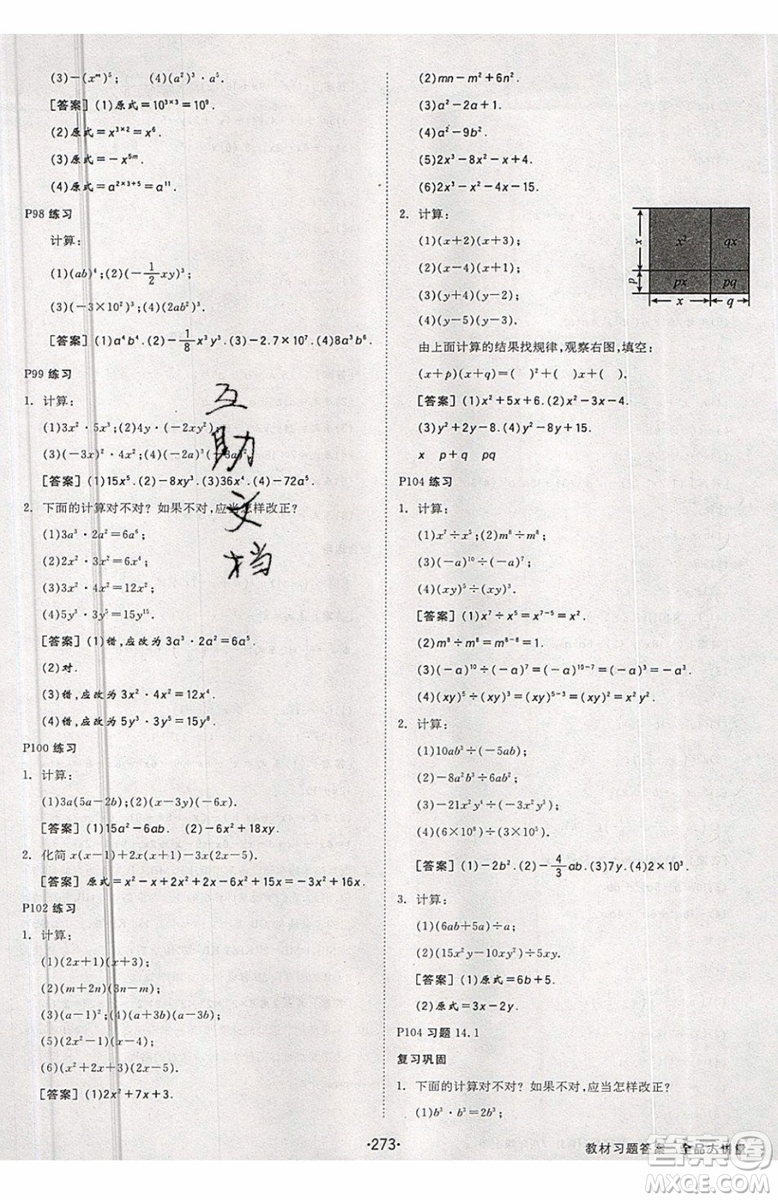 (3)-(xᵐ)⁵; (4)(a²)³·a⁵.
[答案](1)原式=10³ˣ³=10⁹.
(2)原式=x³ˣ²=x⁶.
(3)原式=-x⁵ᵐ.
(4)原式=a²ˣ³⁺⁵=a¹¹.
P98 练习
计算:
(1)(ab)⁴;(2)(-1/2xy)³;
(3)(-3×10²)³;(4)(2ab²)³.
[答案](1)a⁴b⁴.(2)-1/8x³y³.(3)-2.7×10⁷.(4)8a³b⁶.
P99 练习
1. 计算:
(1)3x²·5x³;(2)4y·(-2xy²);
(3)(-3x)²·4x²;(4)(-2a)³(-3a)².
[答案](1)15x⁵.(2)-8xy³.(3)36x⁴.(4)-72a⁵.
2. 下面的计算对不对?如果不对,应当怎样改正?
(1)3a³·2a²=6a⁶;
(2)2x²·3x²=6x⁴;
(3)3x²·4x²=12x²;
(4)5y³·3y⁵=15y¹⁵.
[答案](1)错,应改为3a³·2a²=6a⁵.
(2)对.
(3)错,应改为3x²·4x²=12x⁴.
(4)错,应改为5y³·3y⁵=15y⁸.
P100 练习
1. 计算:
(1)3a(5a-2b);(2)(x-3y)(-6x).
[答案](1)15a²-6ab.(2)-6x²+18xy.
2. 化简x(x-1)+2x(x+1)-3x(2x-5).
[答案]原式=x²-x+2x²+2x-6x²+15x=-3x²+16x.
P102 练习
1. 计算:
(1)(2x+1)(x+3);
(2)(m+2n)(3n-m);
(3)(a-1)²;(4)(a+3b)(a-3b);
(5)(2x²-1)(x-4);
(6)(x²+2x+3)(2x-5).
[答案](1)2x²+7x+3.
(2)mn-m²+6n².
(3)a²-2a+1.
(4)a²-9b².
(5)2x³-8x²-x+4.
(6)2x³-x²-4x-15.
2. 计算:
(1)(x+2)(x+3);
(2)(x-4)(x+1);
(3)(y+4)(y-2);
(4)(y-5)(y-3).
由上面计算的结果找规律,观察右图,填空:
(x+p)(x+q)=( )²+( )x+( ).
[答案](1)x²+5x+6.(2)x²-3x-4.
(3)y²+2y-8.(4)y²-8y+15.
x p+q pq
x² qx
px pq
x
p
x q
P104 练习
1. 计算:
(1)x⁷÷x⁵;(2)m⁸÷m⁸;
(3)(-a)¹⁰÷(-a)⁷;
(4)(xy)⁵÷(xy)³.
[答案](1)x⁷÷x⁵=x⁷⁻⁵=x².
(2)m⁸÷m⁸=m⁸⁻⁸=m⁰=1.
(3)(-a)¹⁰÷(-a)⁷=(-a)¹⁰⁻⁷=(-a)³=-a³.
(4)(xy)⁵÷(xy)³=(xy)⁵⁻³=(xy)²=x²y².
2. 计算:
(1)10ab³÷(-5ab);
(2)-8a²b³÷6ab²;
(3)-21x²y⁴÷(-3x²y³);
(4)(6×10⁸)÷(3×10⁵).
[答案](1)-2b².(2)-4/3ab.(3)7y.(4)2×10³.
3. 计算:
(1)(6ab+5a)÷a;
(2)(15x²y-10xy²)÷5xy.
[答案](1)原式=6b+5.
(2)原式=3x-2y.
P104 习题14.1
复习巩固
1. 下面的计算对不对?如果不对,应当怎样改正?
(1)b³·b³=2b³;
互助文档
·273·
教材习题答案 全品大讲堂